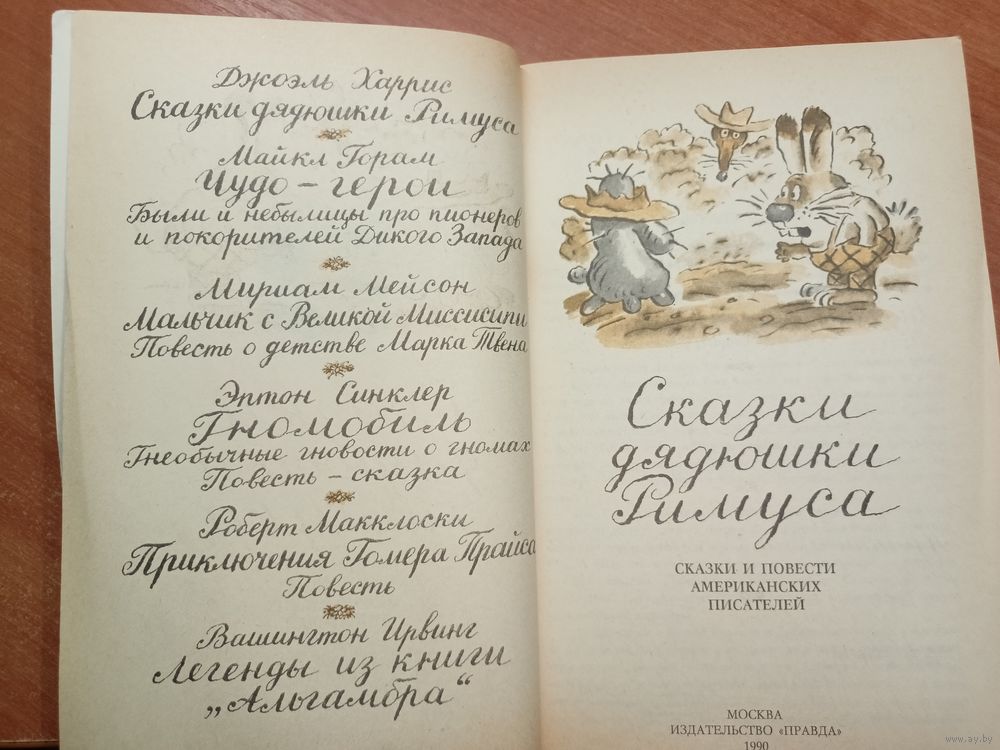 Джоэль Харрис
Сказки дядюшки Римуса
Майкл Горам
Чудо-герои
Были и небылицы про пионеров
и покорителей Дикого Запада
Мириам Мейсон
Мальчик с Великой Миссисипи
Повесть о детстве Марка Твена
Эптон Синклер
Гномобиль
Гнеобычные гновости о гномах
Повесть-сказка
Роберт Макклоски
Приключения Гомера Прайса
Повесть
Вашингтон Ирвинг
Легенды из книги
„Альгамбра“
Сказки
дядюшки
Римуса
СКАЗКИ И ПОВЕСТИ
АМЕРИКАНСКИХ
ПИСАТЕЛЕЙ
МОСКВА
ИЗДАТЕЛЬСТВО «ПРАВДА»
1990
www.ay.by